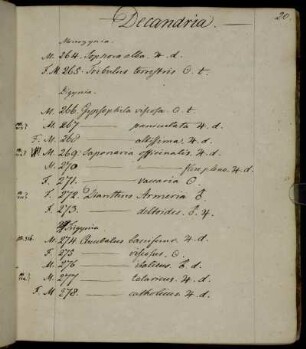 20.
Decandria.
Monogynia.
M. 264. Sophora alba. H. d.
F. M. 265. Tribulus terrestris O. t.
Digynia.
M. 266 Gypsophila viscosa O. t.
M. 267 ——— paniculata H. d.
F. M. 268 ——— altissima H. d.
M. 269. Saponaria officinalis. H. d.
M. 270 ———
F. 271. ——— vaccaria O.
F. 272. Dianthus Armeria
F. 273. ——— deltoides.
Trigynia
M. 274. Cucubalus
F. 275 ——— viscosus O.
M. 276 ——— italicus. d.
M. 277 ——— tataricus. H. d.
F. M. 278. ——— catholicus H. d.